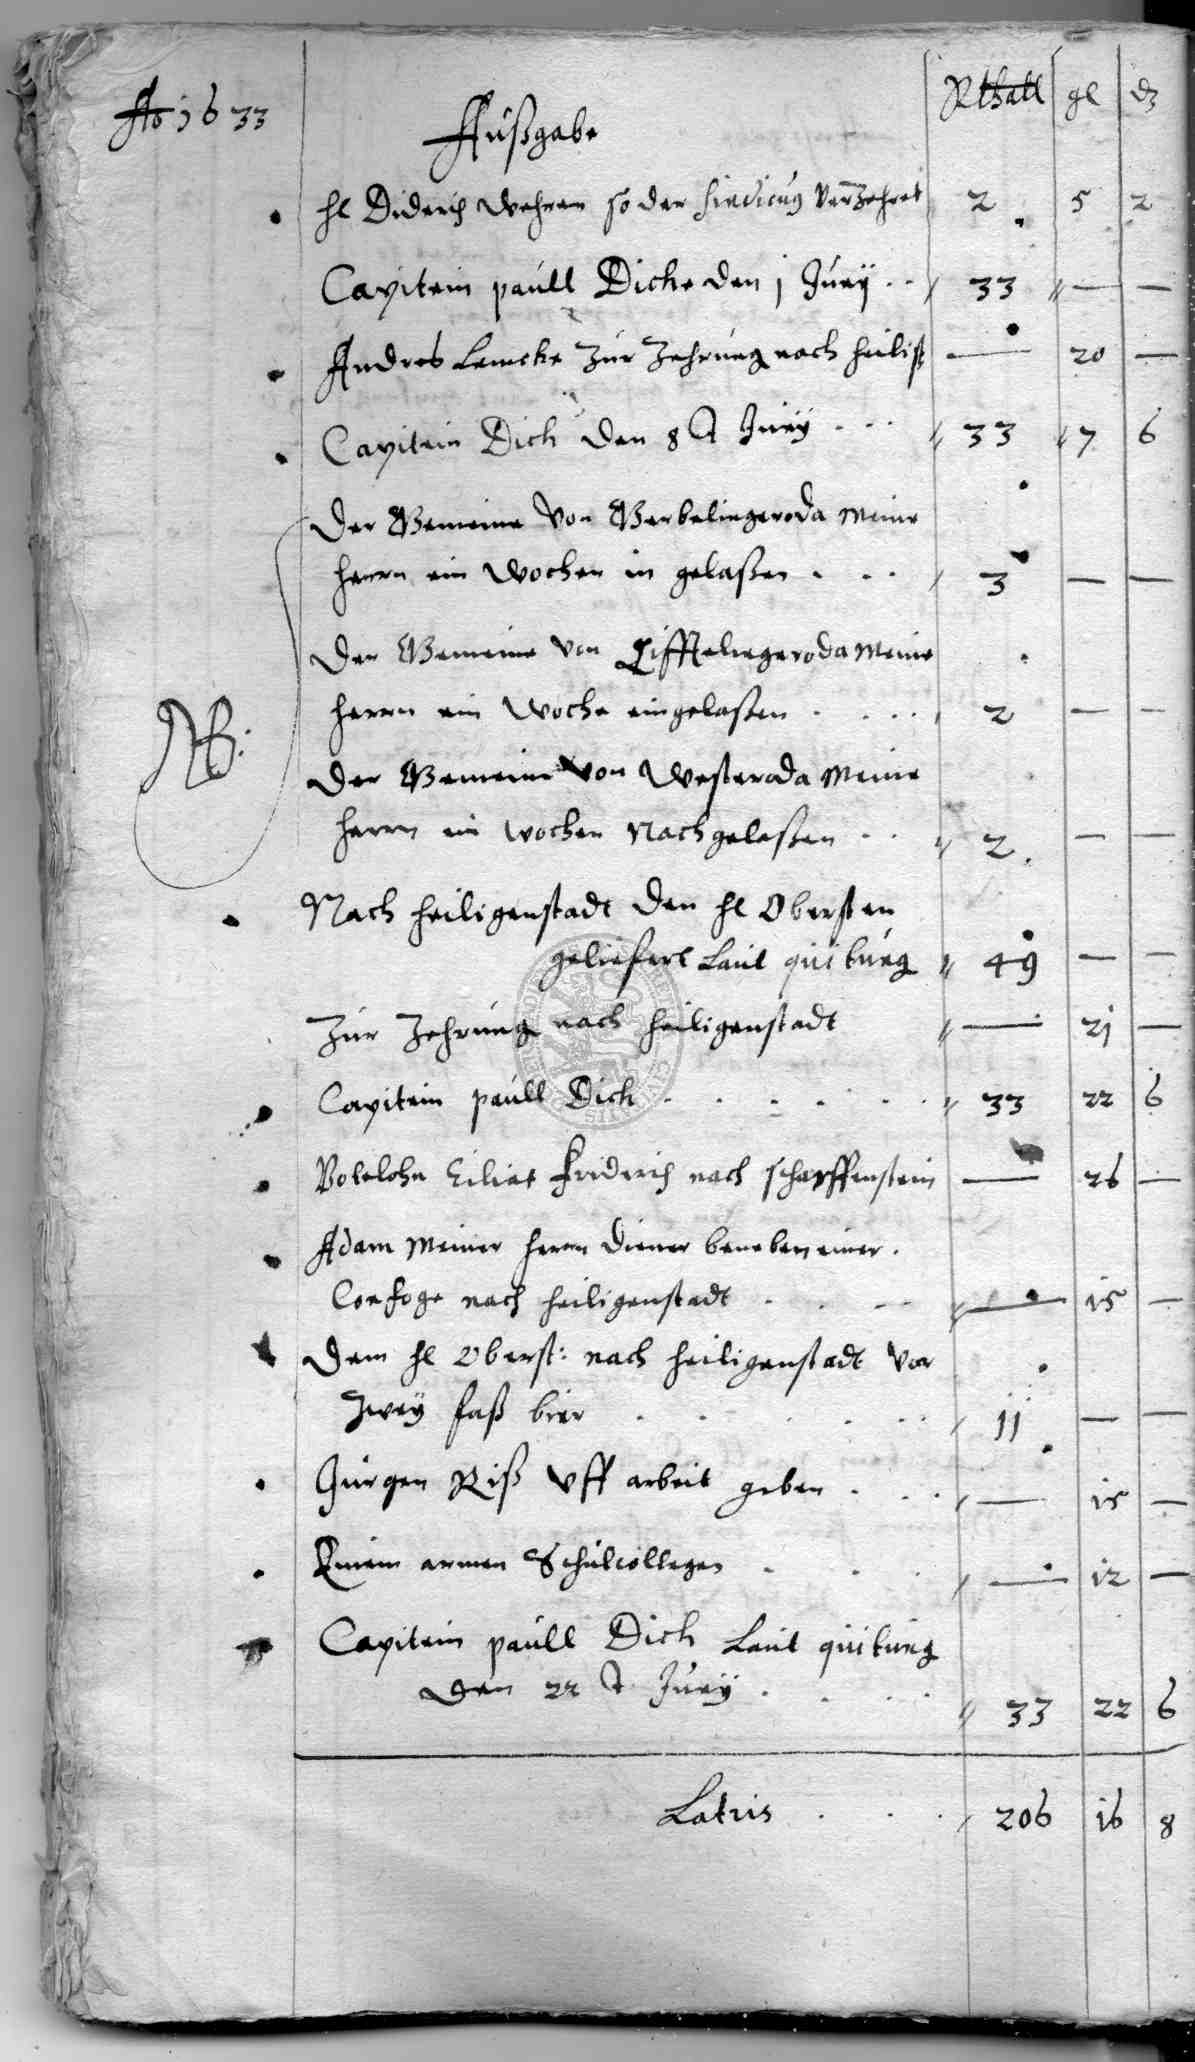 Ao 1633
Außgabe
Rthall gl d
hl Diderich Wehren so der Sindicus Verzehret 2 5 2
Capitein paull Dicke den 1 Juny 33 — —
Andres Lemcke Zur Zehrung nach heilist — 20 —
Capitein Dich den 8 t Juny 33 7 6
Der Gemeine Von Gerbelingeroda Meine
herrn ein Wochen in gelaßen 3 — —
NB:
Der Gemeine Von Tifftelingeroda Meine
herrn ein Woche eingelaßen 2 — —
Der Gemeine Von Westeroda Meine
herrn ein Wochen Nachgelaßen 2 — —
Nach heiligenstadt den hl Obersten
geliefert Laut quitung 49 — —
Zur Zehrung nach heiligenstadt — 21 —
Capitein paull Dich 33 22 6
Botelohn Friderich nach scharffenstein — 26 —
Adam Meiner herrn Diener beneben einer
nach heiligenstadt — 15 —
Dem hl Oberst: nach heiligenstadt Vor
Zwey faß bier 11 — —
Jurgen Riß Vff arbeit geben — 15 —
Einem armen Schulcollegen — 12 —
Capitein paull Dich Laut quitung
den 22 t Juny 33 22 6
Latris 206 16 8